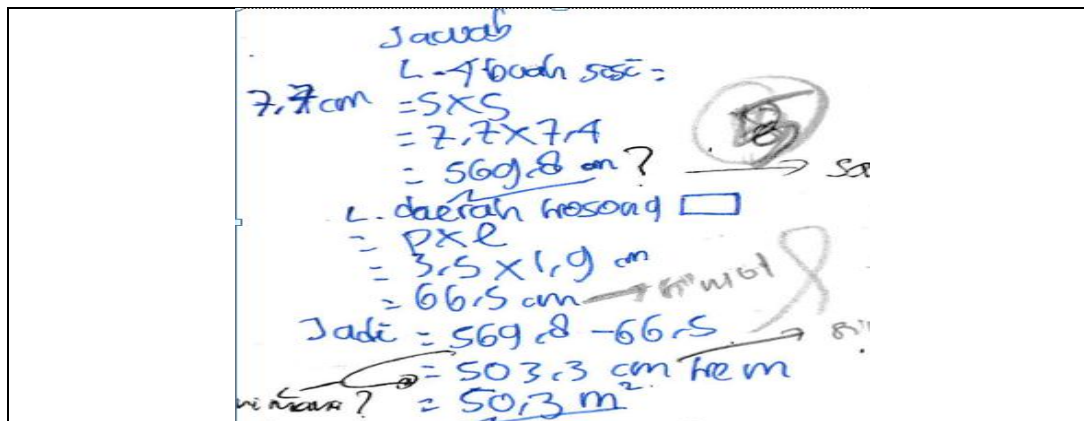 Jawab
L. 4 buah sisi =
7,7 cm = S x S
= 7,7 x 7,4
= 569,8 cm ?
L. daerah kosong
= p x l
= 3,5 x 1,9 cm
= 66,5 cm
Jadi = 569,8 - 66,5
= 503,3 cm ke m
= 50,3 m²